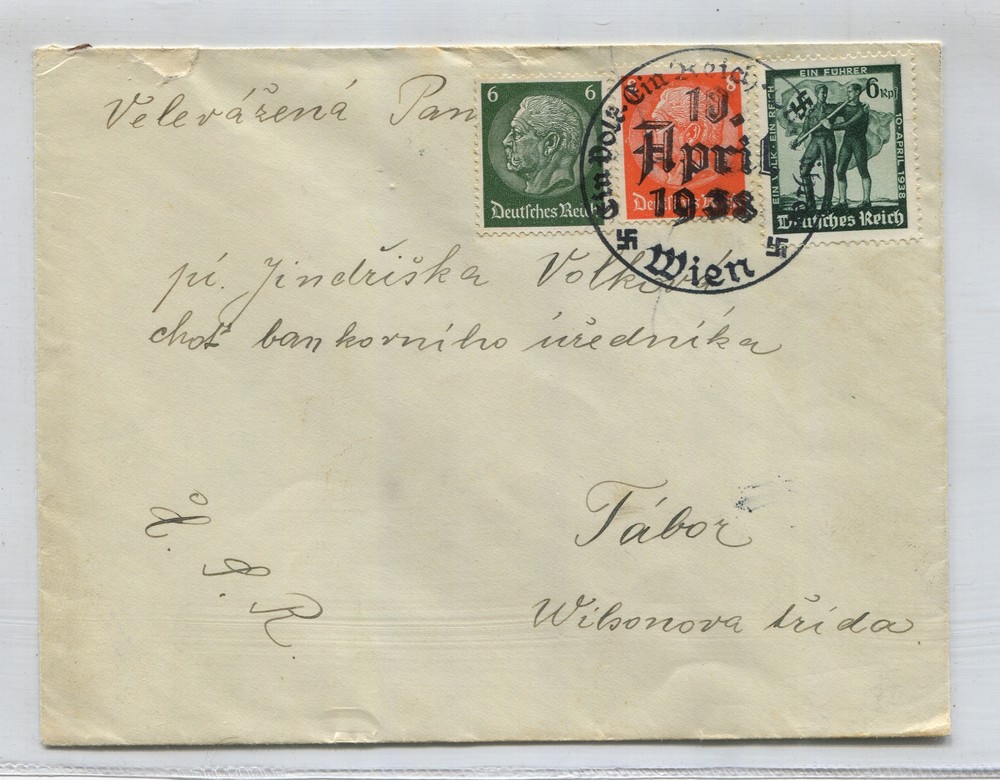 Velevážená Pan
6 6
Deutsches Reich
8
Deutsches Reich
EIN FÜHRER
EIN VOLK · EIN REICH
10·APRIL 1938
6 Rpf
Deutsches Reich
Ein Volk·Ein Reich·
10.
April
1938
Wien
pí. Jindřiška Volková
choť bankovního úředníka
Tábor
Wilsonova třída
Č. S. R